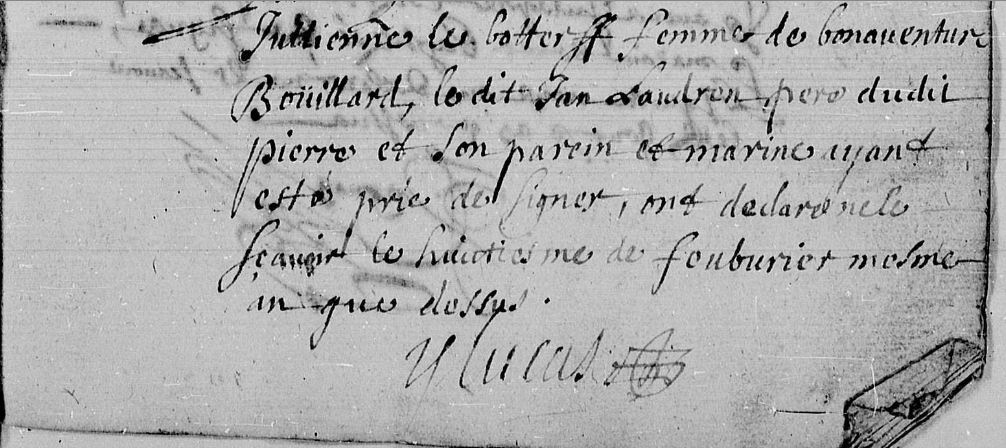 Jullienne le botterff femme de bonaventure
Boüillard, le dit Jan Laudren pere dudit
pierre et son parein et marine ayant
esté prié de signer, ont declaré ne le
sçavoir le huictiesme de feuburier mesme
an que dessus.
Y Lucas